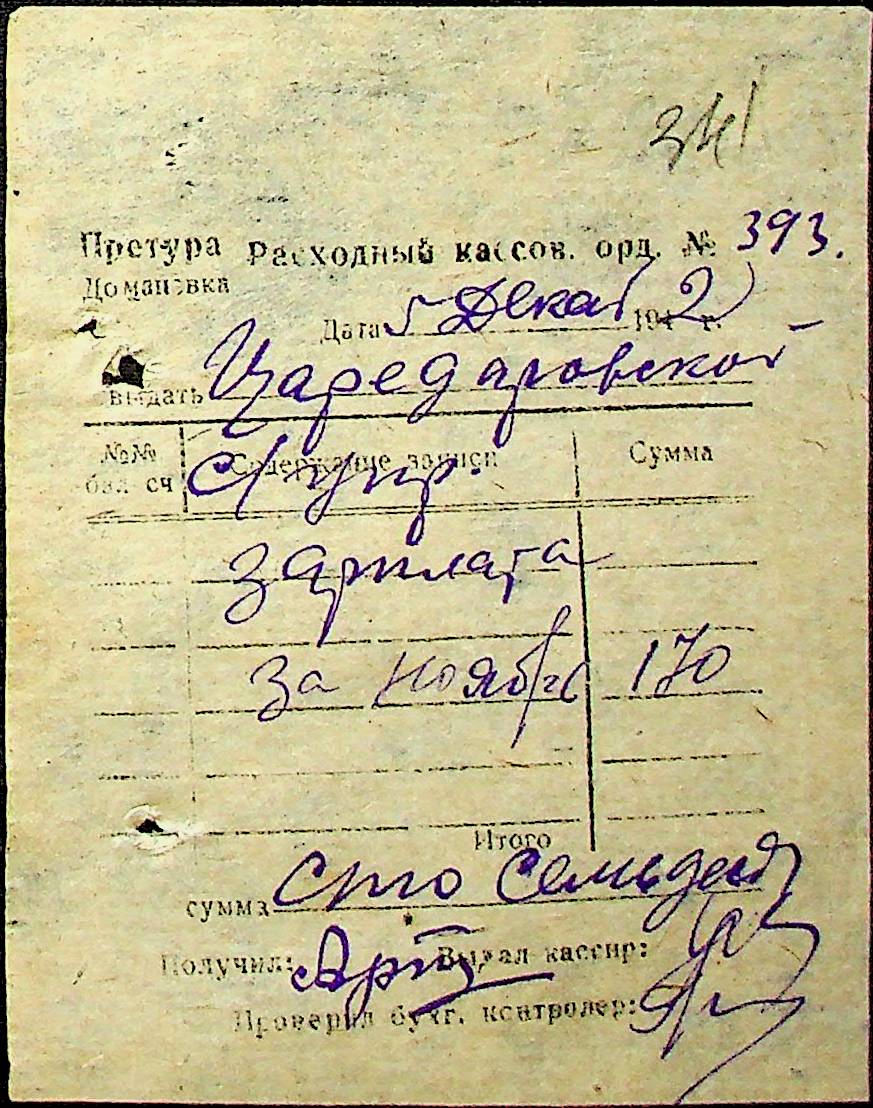 Претура Расходный кассов. орд. № 393.
Домановка
Дата 5 Декаб 194 2 г.
выдать Цареда ровской
№№ бал сч Содержание записи Сумма
зарплата
за ноябрь 170
Итого
сумма Сто Семьдесят
Получил: Выдал кассир:
Проверил бухг. контролер: